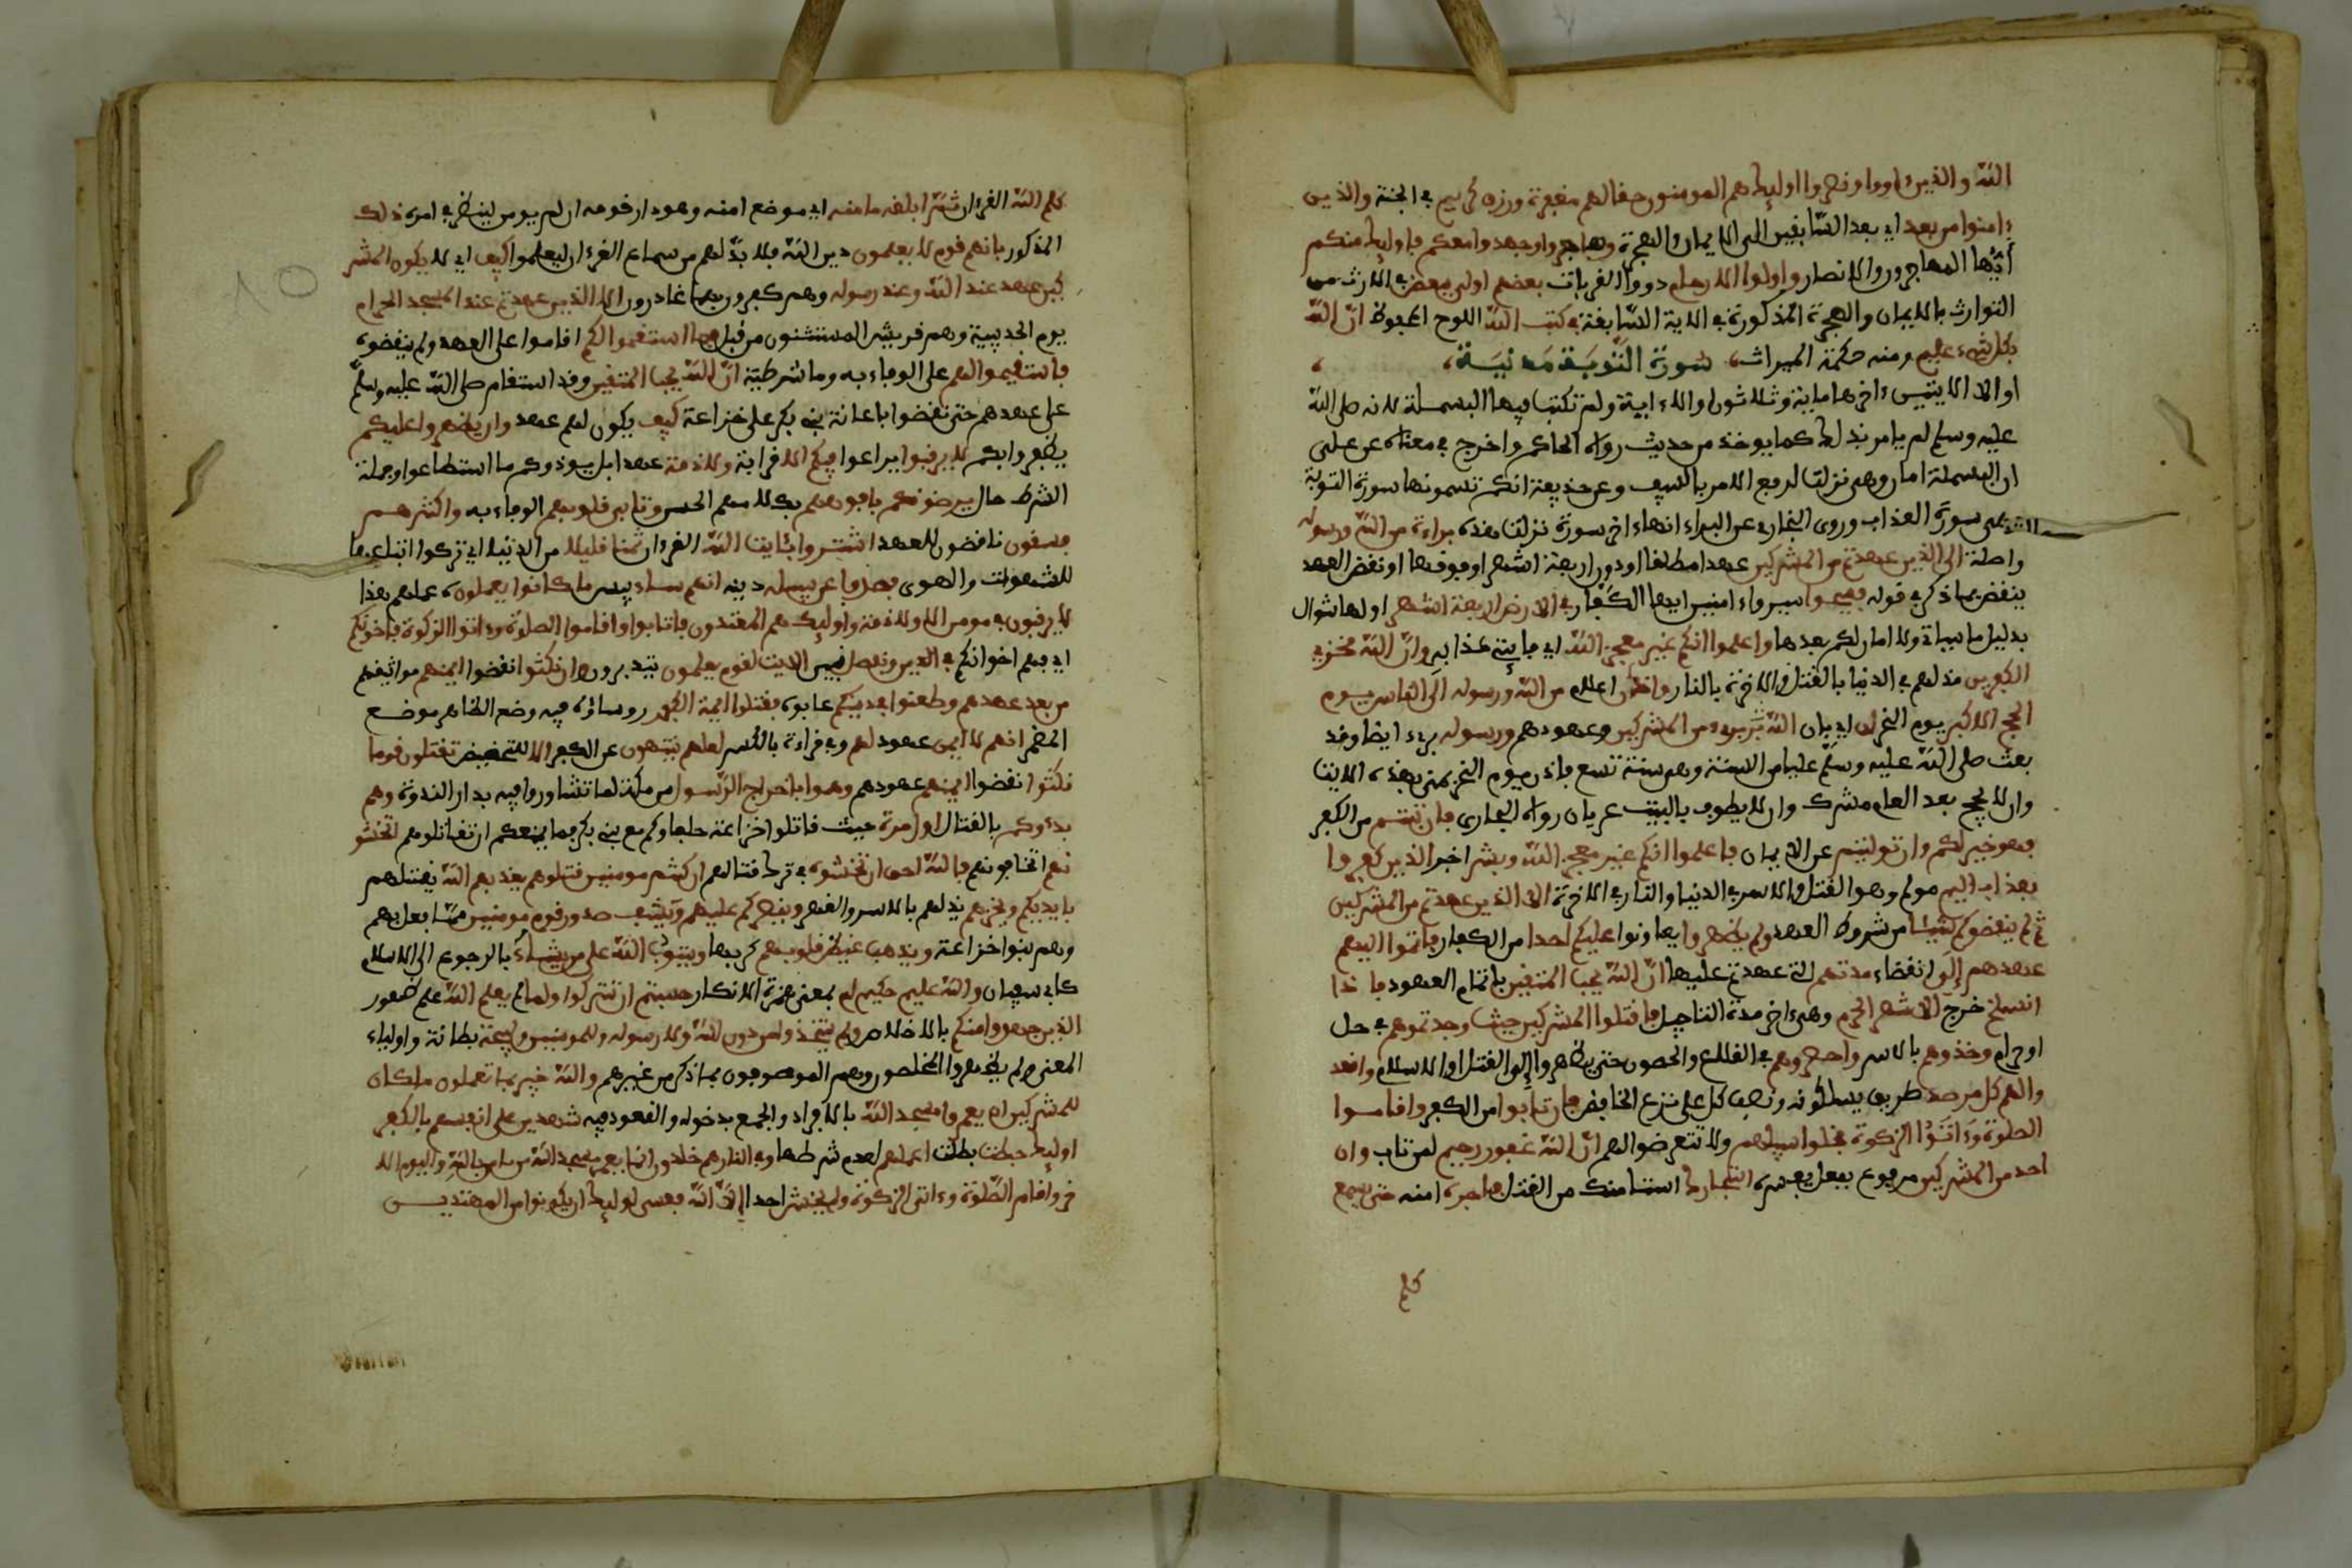 الله والذين ءاووا ونصروا اوليك هم المومنون حقا لهم مغفرة ورزق كريم في الجنة والذين
ءامنوا من بعد اي بعد السابقين الى الايمان والهجرة وهاجروا وجهدوا معكم فاوليك منكم
أيّها المهاجرون والانصار واولوا الارحام ذووا القرابت بعضهم اولى ببعض في الارث من
التوارث بالايمان والهجرة المذكورة في الاية السابقة في كتب الله اللوح المحفوظ انّ الله
بكل شيء عليم ومنه حكمة الميراث سورة التّوبة مدنيّة
او الا الايتين ءاخرها ماية وثلاثون او الا ءاية ولم تكتب فيها البسملة لانه صلى الله
عليه وسلم لم يامر بذلك كما يوخذ من حديث رواه الحاكم واخرج في معناه عن علي
ان البسملة امان وهي نزلت لرفع الامن بالسيف وعن حذيفة انكم تسمونها سورة التوبة
وهي سورة العذاب وروى البخاري عن البراء انها ءاخر سورة نزلت هذه براءة من الله ورسوله
واصلة الى الذين عهدتم من المشركين عهدا مطلقا او دون اربعة اشهر او فوقها او نقض العهد
ينقض بما ذكر في قوله فسيحوا سيروا ءامنين ايها الكفار في الارض اربعة اشهر اولها شوال
بدليل ما سياتي ولا امان لكم بعدها واعلموا انكم غير معجزي الله اي فايتي عذابه وانّ الله مخزي
الكفرين مذلهم في الدنيا بالقتل والاخرة بالنار واذان اعلام من الله ورسوله الى الناس يوم
الحج الاكبر يوم النحر ان اي بان الله بريء من المشركين وعهودهم ورسوله بريء ايضا وقد
بعث صلى الله عليه وسلم عليا من السنة وهي سنة تسع فاذن يوم النحر بمنى بهذه الايت
وان لا يحج بعد العام مشرك وان لا يطوف بالبيت عريان رواه البخاري فان تبتم من الكفر
فهو خير لكم وان توليتم عن الايمان فاعلموا انكم غير معجزي الله وبشر اخبر الذين كفروا
بعذاب اليم مولم وهو القتل والاسر في الدنيا والنار في الاخرة الا الذين عهدتم من المشركين
ثم لم ينقضوكم شيئا من شروط العهد ولم يظهروا يعاونوا عليكم احدا من الكفار فاتموا اليهم
عهدهم إلى انقضاء مدتهم التي عهدتم عليها انّ الله يحب المتقين باتمام العهود فاذا
انسلخ خرج الاشهر الحرم وهي ءاخر مدة التاجيل فاقتلوا المشركين حيث وجدتموهم في حل
او حرام وخذوهم بالاسر واحصروهم في القلاع والحصون حتى يضطروا إلى القتل او الاسلام واقعد
وا لهم كل مرصد طريق يسلكونه ونصب كل على نزع الخافض فان تابوا من الكفر واقاموا
الصلوة وءاتوا الزكوة فخلوا سبيلهم ولا تتعرضوا لهم انّ الله غفور رحيم لمن تاب وان
احد من المشركين مرفوع بفعل يفسره استجارك استامنك من القتل فاجره امنه حتى يسمع
كلم
كلم الله القرءان ثمّ ابلغه مامنه اي موضع امنه وهو دار قومه ان لم يومن لينظر في امره ذلك
المذكور بانهم قوم لا يعلمون دين الله فلا بدّ لهم من سماع القرءان ليعلموا كيف اي لا يكون للمشر
كين عهد عند الله وعند رسوله وهم كفرون بهما غادرون الا الذين عهدتم عند المسجد الحرام
يوم الحديبية وهم قريش المستثنون من قبل فما استقموا لكم اقاموا على العهد ولم ينقضوه
فاستقيموا لهم على الوفاء به وما شرطية انّ الله يحب المتقين وقد استقام صلى الله عليه وسلّم
على عهدهم حتى نقضوا باعانة بني بكر على خزاعة كيف يكون لهم عهد وان يظهروا عليكم
يظفروا بكم لا يرقبوا يراعوا فيكم الا قرابة ولا ذمة عهدا بل يوذوكم ما استطاعوا وجملة
الشرط حال يرضونكم بافوههم بكلامهم الحسن وتابى قلوبهم الوفاء به واكثرهم
فسقون ناقضون للعهد اشتروا بئايت الله القرءان ثمنا قليلا من الدنيا اي تركوا اتباعها
للشهوات والهوى فصدوا عن سبيله دينه انهم ساء بيس ما كانوا يعملون عملهم هذا
لا يرقبون في مومن الا ولا ذمة واوليك هم المعتدون فان تابوا واقاموا الصلوة وءاتوا الزكوة فاخونكم
اي فهم اخوانكم في الدين ونفصل نبين الايت لقوم يعلمون يتدبرون وان نكثوا نقضوا ايمنهم مواثيقهم
من بعد عهدهم وطعنوا في دينكم عابوه فقتلوا ايمة الكفر روساؤه فيه وضع الظاهر موضع
المضمر انهم لا ايمن عهود لهم وفي قراءة بالكسر لعلهم ينتهون عن الكفر الا للتحضيض تقتلون قوما
نكثوا نقضوا ايمنهم عهودهم وهموا باخراج الرّسول من مكة لما تشاوروا فيه بدار الندوة وهم
بدءوكم بالقتال اول مرة حيث قاتلوا خزاعة حلفاءكم مع بني بكر فما يمنعكم ان تقاتلوهم اتخشو
نهم اتخافونهم فالله احق ان تخشوه في ترك قتالهم ان كنتم مومنين قتلوهم يعذبهم الله يقتلهم
بايديكم ويخزهم يذلهم بالاسر والقهر وينصركم عليهم ويشف صدور قوم مومنين ممّا فعل بهم
وهم بنوا خزاعة ويذهب غيظ قلوبهم كربها ويتوب الله على من يشاء بالرجوع الى الاسلام
كابي سفيان والله عليم حكيم ام بمعنى همزة الانكار حسبتم ان تتركوا ولما لم يعلم الله علم ظهور
الذين جهدوا منكم بالاخلاص ولم يتخذوا من دون الله ولا رسوله ولا المومنين وليجة بطانة واولياء
المعنى ولم يظهروا المخلصون وهم الموصوفون بما ذكر من غيرهم والله خبير بما تعملون ما كان
للمشركين ان يعمروا مسجد الله بالافراد والجمع بدخوله والقعود فيه شهدين على انفسهم بالكفر
اوليك حبطت بطلت اعملهم لعدم شرطها وفي النار هم خلدون انما يعمر مسجد الله من ءامن بالله واليوم الا
خر واقام الصّلوة وءاتى الزكوة ولم يخش احدا إلا الله فعسى اوليك ان يكونوا من المهتدين